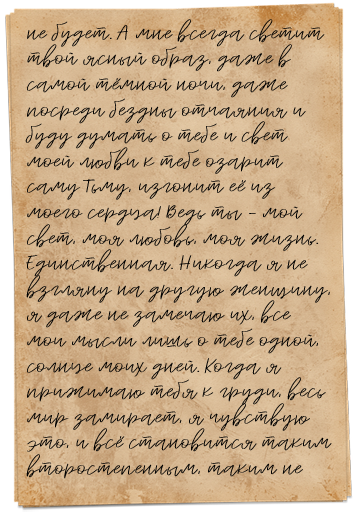 не будет. А мне всегда светит
твой ясный образ, даже в
самой тёмной ночи, даже
посреди бездны отчаяния и
буду думать о тебе и свет
моей любви к тебе озарит
саму Тьму, изгонит её из
моего сердца! Ведь ты - мой
свет, моя любовь, моя жизнь.
Единственная. Никогда я не
взгляну на другую женщину,
я даже не замечаю их, все
мои мысли лишь о тебе одной,
солнце моих дней. Когда я
прижимаю тебя к груди, весь
мир замирает, я чувствую
это, и всё становится таким
второстепенным, таким не